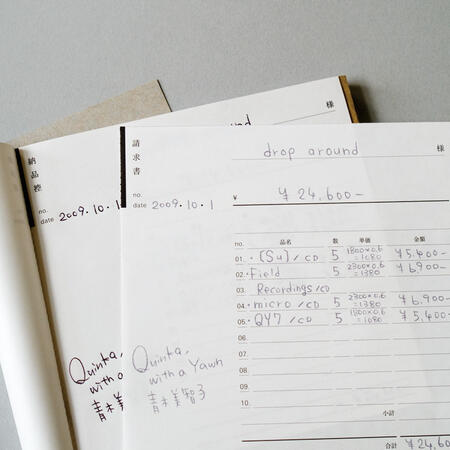 様
納品控
no.
date 2009.10.1
Quinka,
with a
青木美智子
請求書
drop around 様
¥ ¥24,600-
no.
date 2009.10.1
no. 品名 数 単価 金額
01. ・[Su]/CD 5 1800×0.6=1080 ¥5,400-
02. ・Field 5 2300×0.6=1380 ¥6,900-
03. Recordings/CD
04. ・micro/CD 5 2300×0.6=1380 ¥6,900-
05. ・QY7/CD 5 1800×0.6=1080 ¥5,400-
06.
07.
08.
09.
10.
小計
合計 ¥24,60
Quinka,
with a Yawn
青木美智子